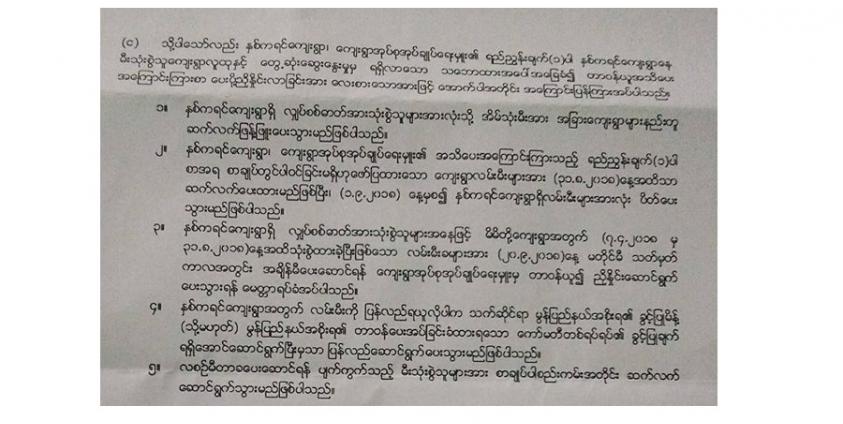 (င) သို့ပါသော်လည်း နှစ်ကရင်ကျေးရွာ၊ ကျေးရွာအုပ်စုအုပ်ချုပ်ရေးမှူး၏ ရည်ညွှန်းချက်(၁)ပါ နှစ်ကရင်ကျေးရွာနေ
မီးသုံးစွဲသူကျေးရွာလူထုနှင့် တွေ့ဆုံဆွေးနွေးမှုမှ ရရှိလာသော သဘောထားအပေါ်အခြေခံ၍ တာဝန်ယူအသိပေး
အကြောင်းကြားစာ ပေးပို့ညှိနှိုင်းလာခြင်းအား လေးစားသောအားဖြင့် အောက်ပါအတိုင်း အကြောင်းပြန်ကြားအပ်ပါသည်။
၁။ နှစ်ကရင်ကျေးရွာရှိ လျှပ်စစ်ဓာတ်အားသုံးစွဲသူများအားလုံးသို့ အိမ်သုံးမီးအား အခြားကျေးရွာများနည်းတူ
ဆက်လက်ဖြန့်ဖြူးပေးသွားမည်ဖြစ်ပါသည်။
၂။ နှစ်ကရင်ကျေးရွာ၊ ကျေးရွာအုပ်စုအုပ်ချုပ်ရေးမှူး၏ အသိပေးအကြောင်းကြားသည့် ရည်ညွှန်းချက်(၁)ပါ
စာအရ စာချုပ်တွင်ပါဝင်ခြင်းမရှိဟုဖော်ပြထားသော ကျေးရွာလမ်းမီးများအား (၃၁.၈.၂၀၁၈)နေ့အထိသာ
ဆက်လက်ပေးထားမည်ဖြစ်ပြီး၊ (၁.၉.၂၀၁၈) နေ့မှစ၍ နှစ်ကရင်ကျေးရွာရှိလမ်းမီးများအားလုံး ပိတ်ပေး
သွားမည်ဖြစ်ပါသည်။
၃။ နှစ်ကရင်ကျေးရွာရှိ လျှပ်စစ်ဓာတ်အားသုံးစွဲသူများအနေဖြင့် မိမိတို့ကျေးရွာအတွက် (၇.၄.၂၀၁၈ မှ
၃၁.၈.၂၀၁၈)နေ့အထိသုံးစွဲထားခဲ့ပြီးဖြစ်သော လမ်းမီးခများအား (၂၀.၉.၂၀၁၈)နေ့ မတိုင်မီ သတ်မှတ်
ကာလအတွင်း အချိန်မီပေးဆောင်ရန် ကျေးရွာအုပ်စုအုပ်ချုပ်ရေးမှူးမှ တာဝန်ယူ၍ ညှိနှိုင်းဆောင်ရွက်
ပေးသွားရန် မေတ္တာရပ်ခံအပ်ပါသည်။
၄။ နှစ်ကရင်ကျေးရွာအတွက် လမ်းမီးကို ပြန်လည်ရယူလိုပါက သက်ဆိုင်ရာ မွန်ပြည်နယ်အစိုးရ၏ ခွင့်ပြုမိန့်
(သို့မဟုတ်) မွန်ပြည်နယ်အစိုးရ၏ တာဝန်ပေးအပ်ခြင်းခံထားရသော ကော်မတီတစ်ရပ်ရပ်၏ ခွင့်ပြုချက်
ရရှိအောင်ဆောင်ရွက်ပြီးမှသာ ပြန်လည်ဆောင်ရွက်ပေးသွားမည်ဖြစ်ပါသည်။
၅။ လစဉ်မီတာခပေးဆောင်ရန် ပျက်ကွက်သည့် မီးသုံးစွဲသူများအား စာချုပ်ပါစည်းကမ်းအတိုင်း ဆက်လက်
ဆောင်ရွက်သွားမည်ဖြစ်ပါသည်။